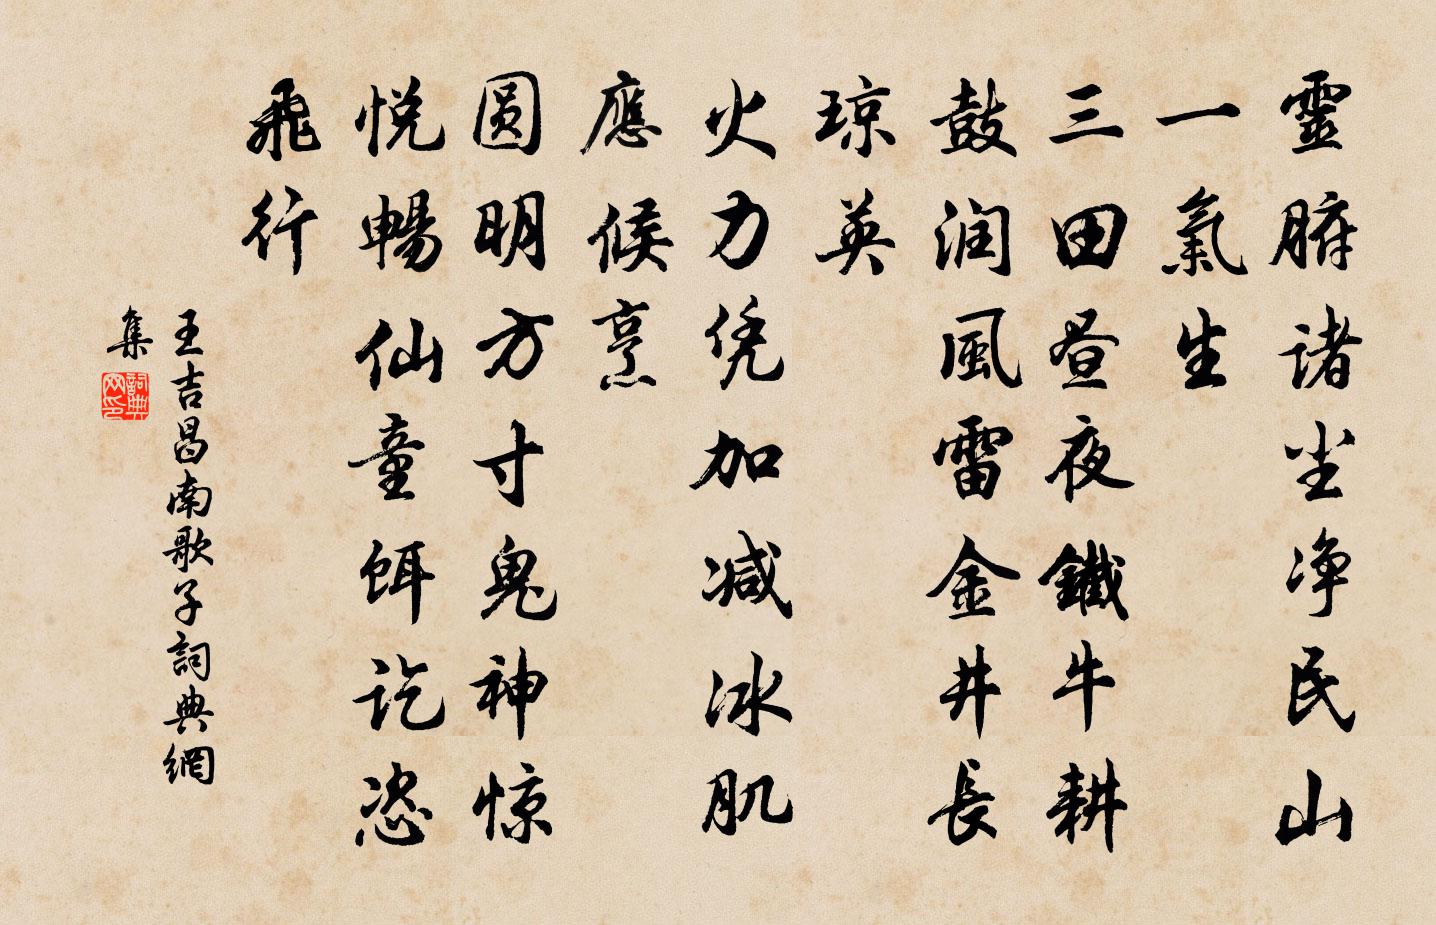 靈腑诸尘净民山
一氣生
三田昼夜鐵牛耕
鼓润風雷金井長
琼英
火力凭加减冰肌
應候烹
圓明方寸鬼神惊
悦暢仙童饵讫恣
飛行
王吉昌南歌子詞典網
集
詞典
网印